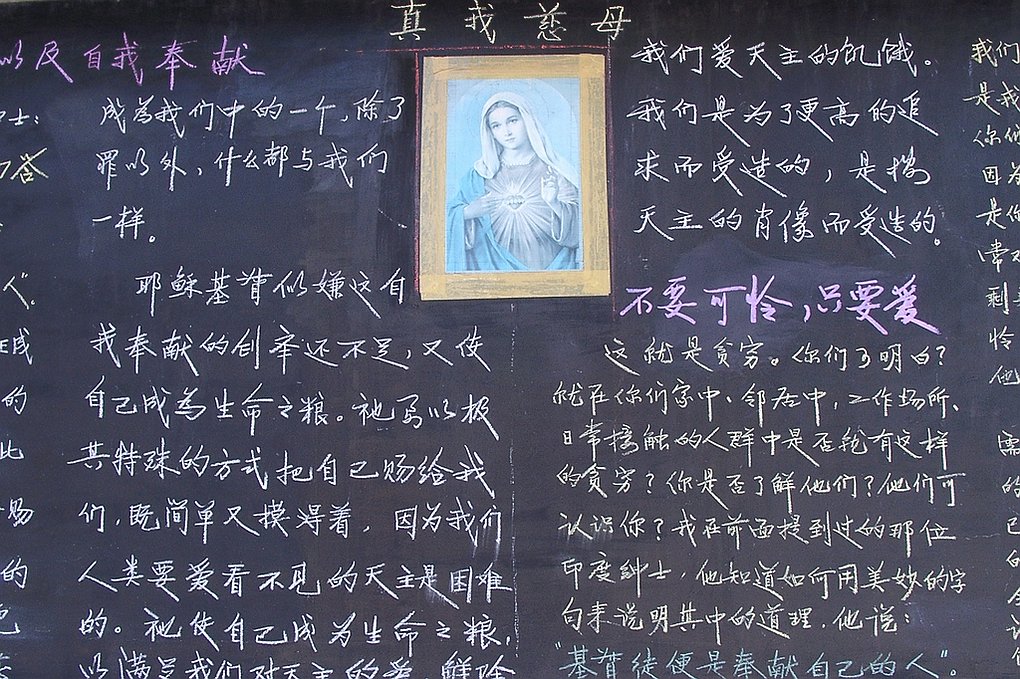 真我慈母
以及自我奉献
士：
答
人”。
成
的
此
赐
的
成为我们中的一个，除了
罪以外，什么都与我们
一样。
耶稣基督似嫌这自
我奉献的创举还不足，又使
自己成为生命之粮。祂写以极
其特殊的方式把自己赐给我
们，既简单又摸得着，因为我们
人类要爱看不见的天主是困难
的。祂使自己成为生命之粮，
以满足我们对天主的爱，解除
我们爱天主的饥饿。
我们是为了更高的追
求而受造的，是按
天主的肖像而受造的。
不要可怜，只要爱
这就是贪穷。你们了明白？
就在你们家中、邻居中，工作场所、
日常接触的人群中是否就有这样
的贪穷？你是否了解他们？他们可
认识你？我在前面提到过的那位
印度绅士，他知道如何用美妙的字
句来说明其中的道理，他说：
“基督徒便是奉献自己的人”。
我们
是我
你们
因为
是你
剩
怜
他
需
的
己
的